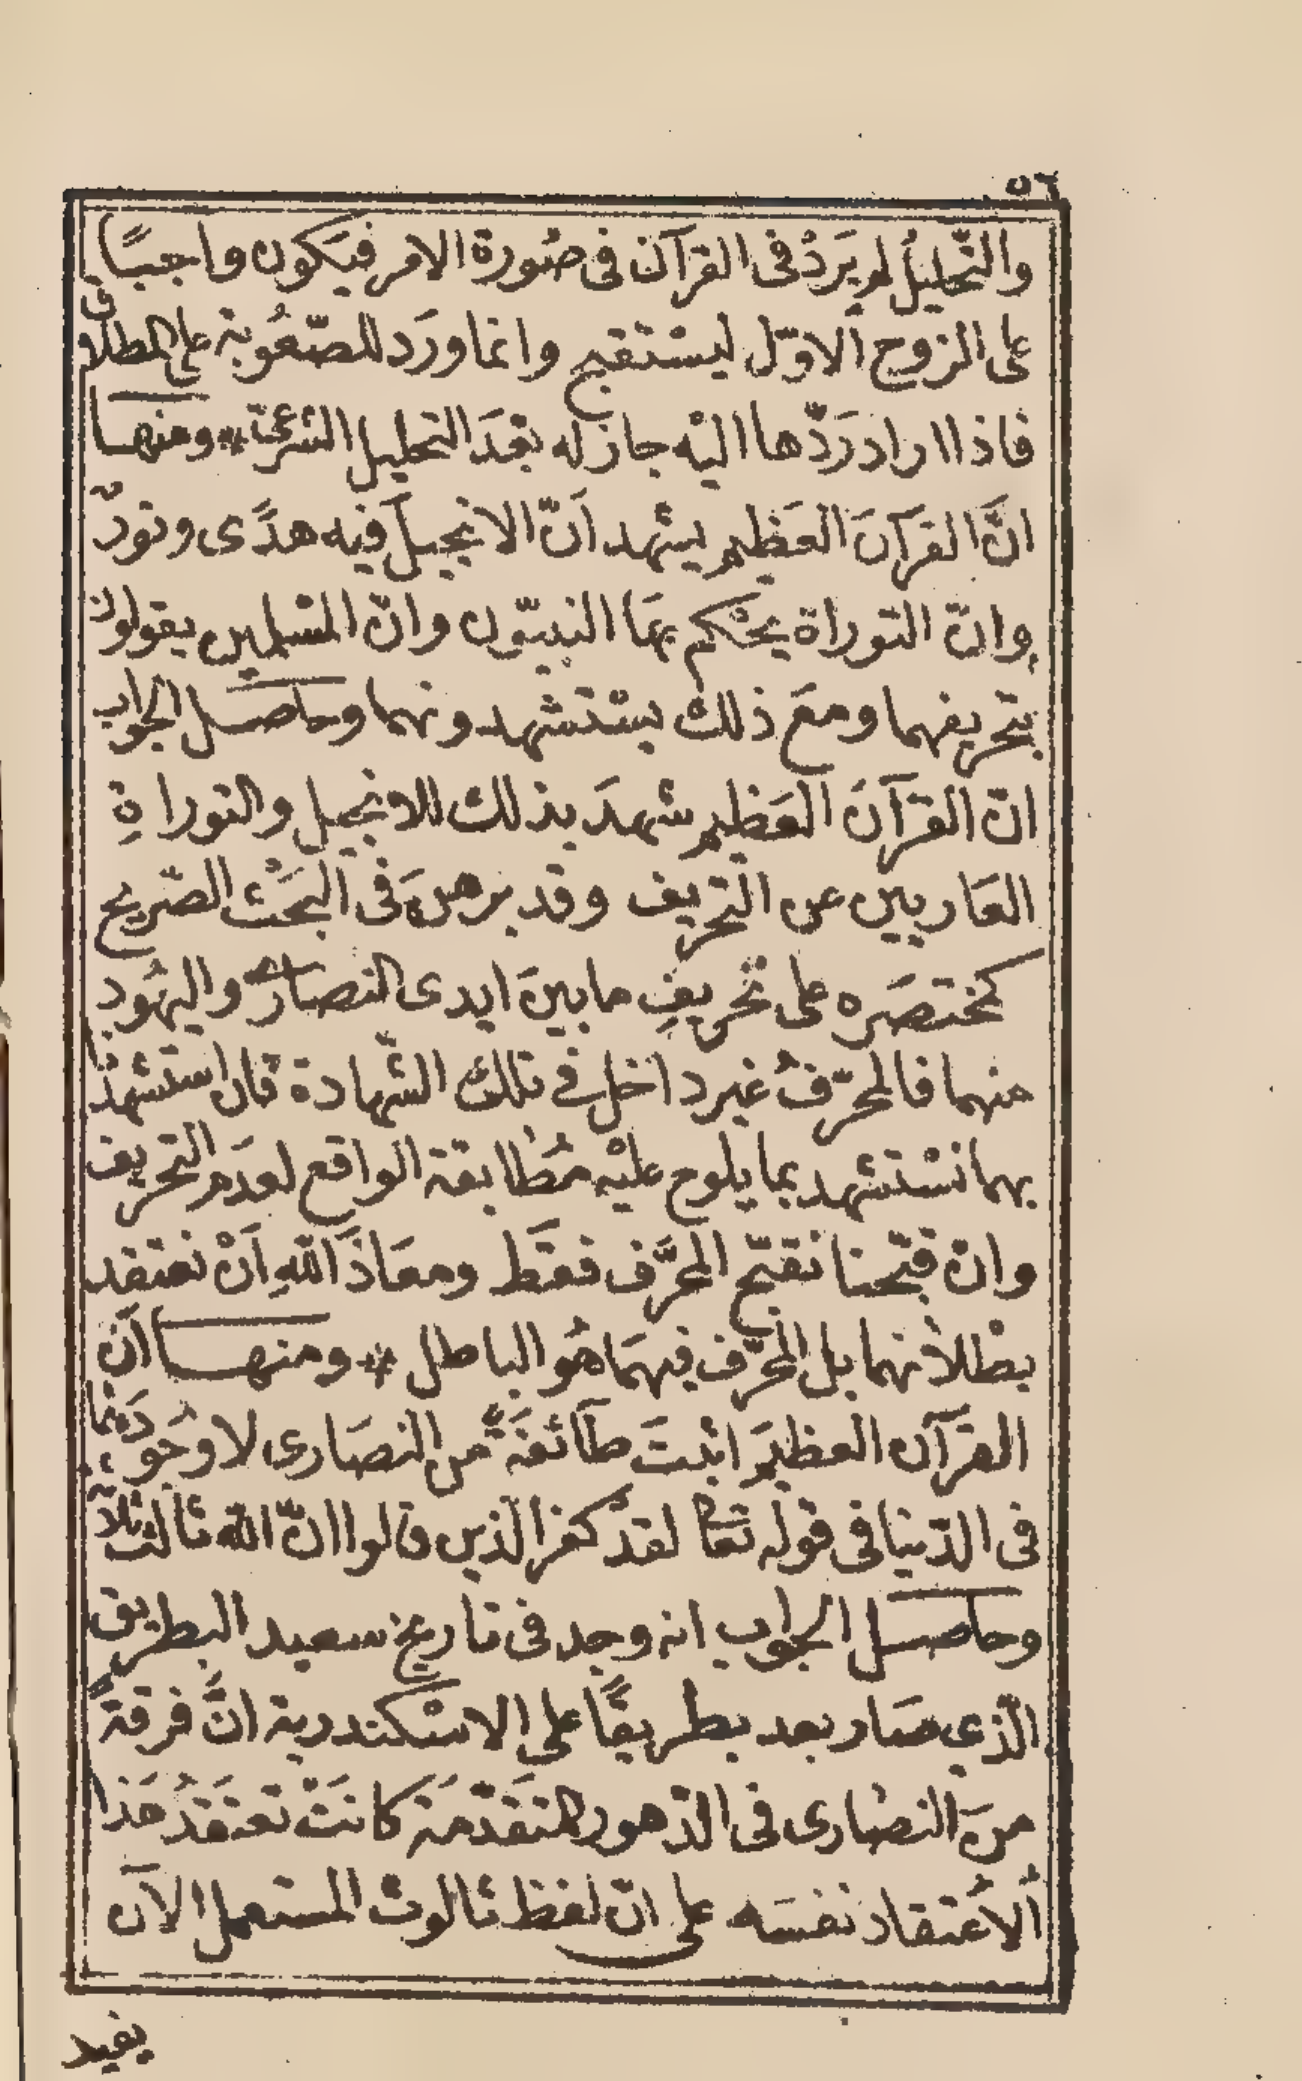 ٥٦
والتّحليلُ لم يَرِدْ فى القرآن فى صُورة الامر فيَكون واجبًا
على الزوج الاوّل ليسْتقبح وانما ورَد للصّعُوبة على المطلاق
فاذا اراد رَدّها اليْه جاز له بعْدَ التحليل الشرعىّ * ومنهـا
انَّ القرَآنَ العَظيم يشهد اَنّ الانجيل فيه هدًى ونورٌ
وانّ التوراة يحْكم بها النبيّون وانّ المسْلمين يقولون
بتحريفهما ومعَ ذلك يسْتشهدونهما وحاصل الجواب
انّ القرآنَ العَظيم شهدَ بذلك للانجيل والتوراةِ
العَاريين عن التحريف وقد برهنَ فى البَحْث الصّريح
كمختصَره على تحريفِ ما بينَ ايدى النصارى واليهُود
منهما فالمحرّفُ غير داخل فى تلك الشّهادة فان استشهدْنا
بهما نسْتشهد بما يلوح عليْه مُطابقة الواقع لعدَم التحريف
وانْ قبّحنا نقبّح المحرَّف فقَط ومعَاذَ اللهِ اَنْ نعتقد
بطْلانهما بل المحرّف فيهمَا هُو الباطل * ومنهـا اَنّ
القرَآن العظيمَ اثبتَ طآئفَةً من النصَارى لا وُجُودَ لها
فى الدّنيا فى قوله تعَالى لقدْ كفر الذين قالوا انّ الله ثالث ثلاثة
وحاصل الجواب انه وجد فى تاريخ سعيد البطريق
الّذي صَار بعد بطريقًا على الاسْكندرية انَّ فرقةً
منَ النصْارى فى الدّهور المتقَدّمَة كانَتْ تعتقَدُ هَذا
الاعْتقاد نفسَه على انّ لفظ ثالوث المستعمل الآن
يفيد